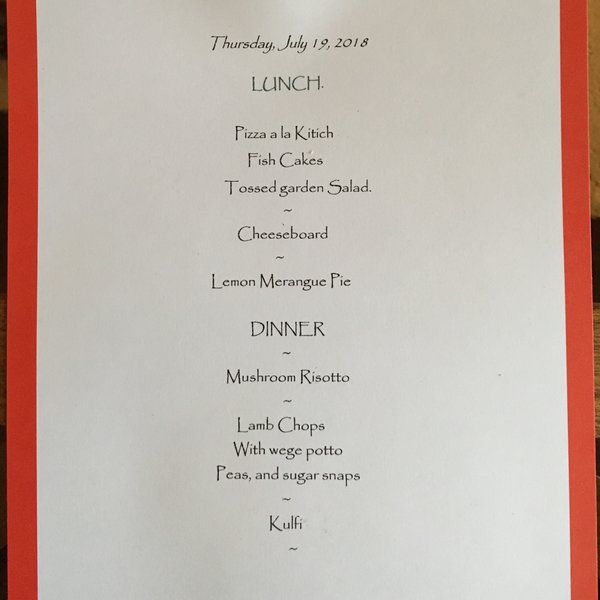 Thursday, July 19, 2018
LUNCH.
Pizza a la Kitich
Fish Cakes
Tossed garden Salad.
~
Cheeseboard
~
Lemon Merangue Pie
DINNER
~
Mushroom Risotto
~
Lamb Chops
With wege potto
Peas, and sugar snaps
~
Kulfi
~